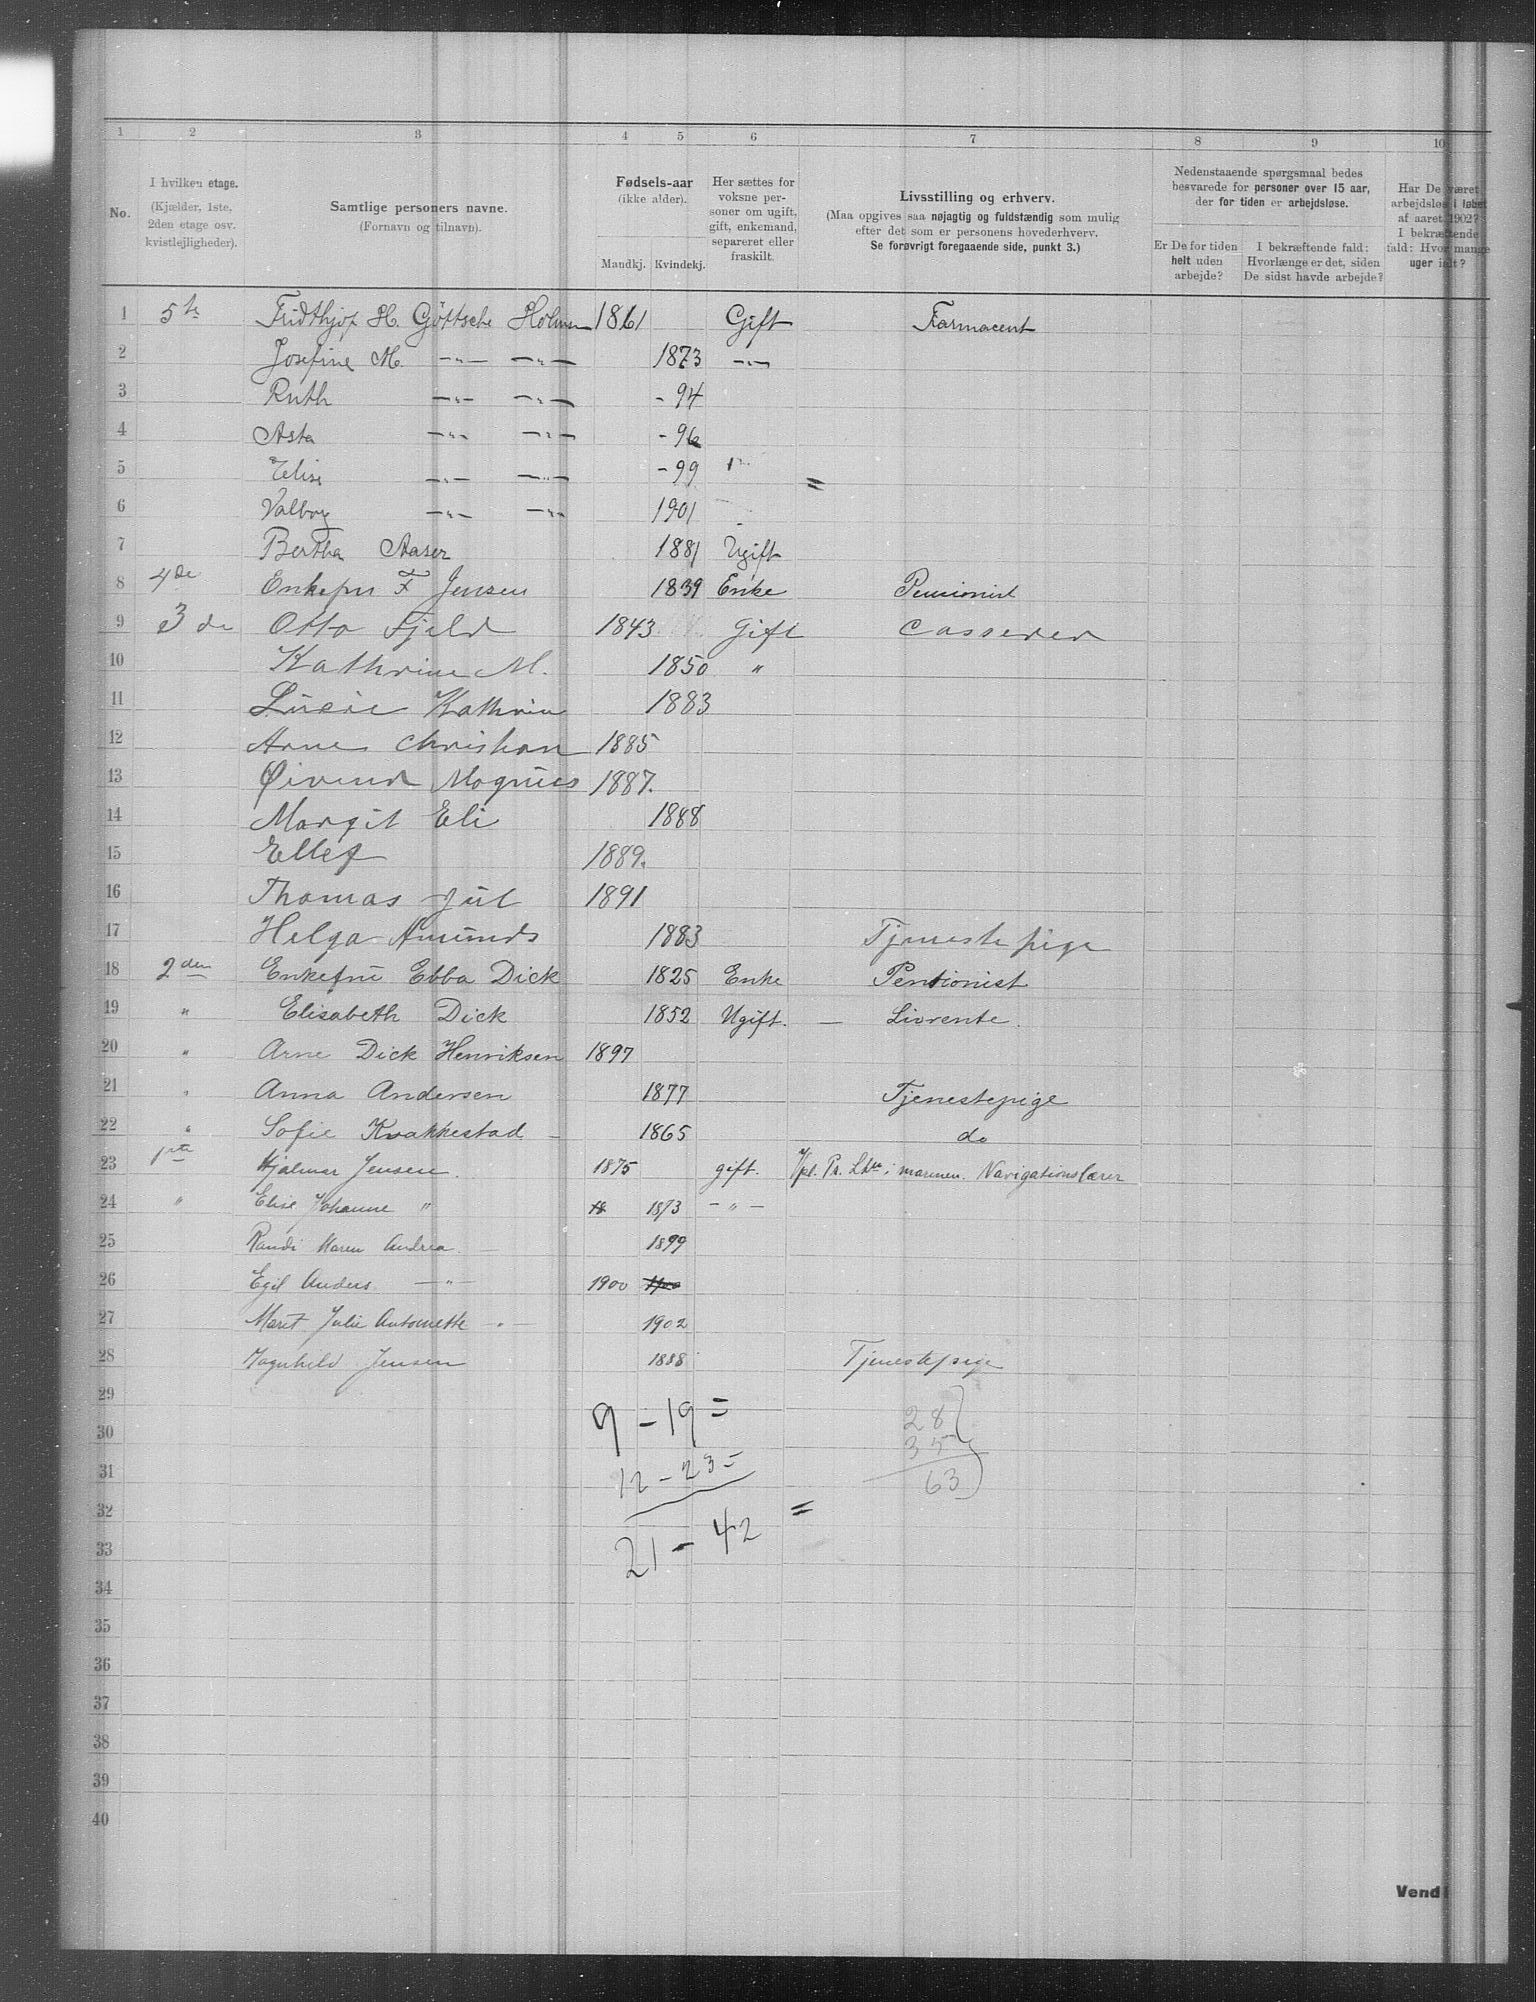 1 2 3 4 5 6 7 8 9 10
No.
I hvilken etage.
(Kjælder, 1ste,
2den etage osv.
kvistlejligheder).
Samtlige personers navne.
(Fornavn og tilnavn).
Fødsels-aar
(ikke alder).
Mandkj. Kvindekj.
Her sættes for
voksne per-
soner om ugift,
gift, enkemand,
separeret eller
fraskilt.
Livsstilling og erhverv.
(Maa opgives saa nøjagtig og fuldstændig som mulig
efter det som er personens hovederhverv.
Se forøvrigt foregaaende side, punkt 3.)
Nedenstaaende spørgsmaal bedes
besvarede for personer over 15 aar,
der for tiden er arbejdsløse.
Er De for tiden
helt uden
arbejde?
I bekræftende fald:
Hvorlænge er det, siden
De sidst havde arbejde?
Har De været
arbejdsløs i løbet
af aaret 1902?
I bekræftende
fald: Hvor mange
uger ialt?
1 5te Fridthjof H. Gøttsche Holmen 1861 Gift Farmacent
2 Josefine M. —„— —„— 1873 —„—
3 Ruth —„— —„— - 94
4 Asta —„— —„— - 96
5 Elise —„— —„— - 99 =
6 Valborg —„— —„— 1901
7 Bertha Aaser 1881 Ugift
8 4de Enkefru F Jensen 1839 Enke Pensionist
9 3de Otto Fjeld 1843 Gift Casserer
10 Kathrine M. 1850 "
11 Lucie Kathrin 1883
12 Arne Christian 1885
13 Øivind Magnus 1887.
14 Margit Eli 1888
15 Ellef 1889.
16 Thomas Jul 1891
17 Helga Amunds 1883 Tjenestepige
18 2den Enkefru Ebba Dick 1825 Enke Pentionist
19 " Elisabeth Dick 1852 Ugift. — Livrente.
20 " Arne Dick Henriksen 1897
21 " Anna Andersen 1877 Tjenestepige
22 " Sofie Kvakkestad — 1865 do
23 1ste Hjalmar Jensen. 1875 gift. Pr. Ltn. i marinen. Navigationslærer
24 " Elise Johanne " 18 1873 — " —
25 Randi Maren Andrea. — 1899
26 Egil Anders —"— 1900 1900
27 Marit Julie Antoinette —"— 1902
28 Ragnhild Jensen 1888 Tjenestepige
29
30 9 - 19 = 28
31 12 - 23 - 35
32 63
33 21 - 42 =
34
35
36
37
38
39
40
Vend!